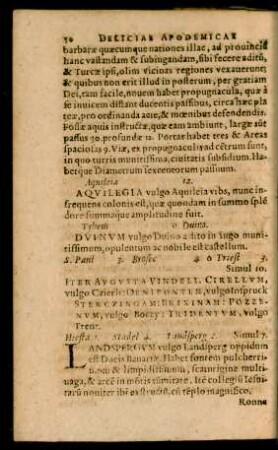 50 DELICIAE APODEMICAE
barbaræ quæcumque nationes illae, ad prouincia
hanc vastandam & subiugandam, sibi fecere aditũ,
& Turcæ ipsi, olim vicinas regiones vexauerunt;
& quibus non erit illud in posterum, per gratiam
Dei, tam facile, nouem habet propugnacula, quæ à
se inuicem distant ducentis passibus, circa hæc pla
tea, pro ordinanda acie, & mœnibus defendendis.
Fossæ aquis instructæ, quæ eam ambiunt, largæ sũt
passus 30. profundæ 12. Portas habet tres & Areas
spaciosas 9. Viæ, ex propugnaculis ad cẽtrum sunt,
in quo turris munitissima, ciuitatis subsidium. Ha-
betque Diametrum sexcentorum passuum.
Aquileia 12.
AQVILEGIA vulgo Aquileia vrbs, nunc in-
frequens colonis est, quæ quondam in summo splẽ
dore summaque amplitudine fuit.
Tybein 0 Duina.
DVINVM vulgo Duino a sito in iugo muni-
tissimum, opulentum ac nobile est castellum.
S. Paul 3. Prosec 4 0 Triest 3.
Simul 10.
ITER AVGVSTA VINDELI. CIRELLVM,
vulgo Czierle: OENIPONTEM, vulgo Insprock
STERCZINGAM: BRIXINAM: POZZE-
NVM, vulgo Boczy: TRIDENTVM, vulgo
Trent.
Stadel 4. Landsperg 2. Simul 7.
LANDSPERGVM vulgo Landsperg oppidum
est Ducis Bauariæ. Habet fontem pulcherri-
mum & limpidissimum, scaurigine multi-
uaga, & arcẽ in mõtis sumitate. Itẽ collegiũ Iesui-
tarũ nouiter ibi exstructũ, cũ tẽplo magnifico.
Ronne